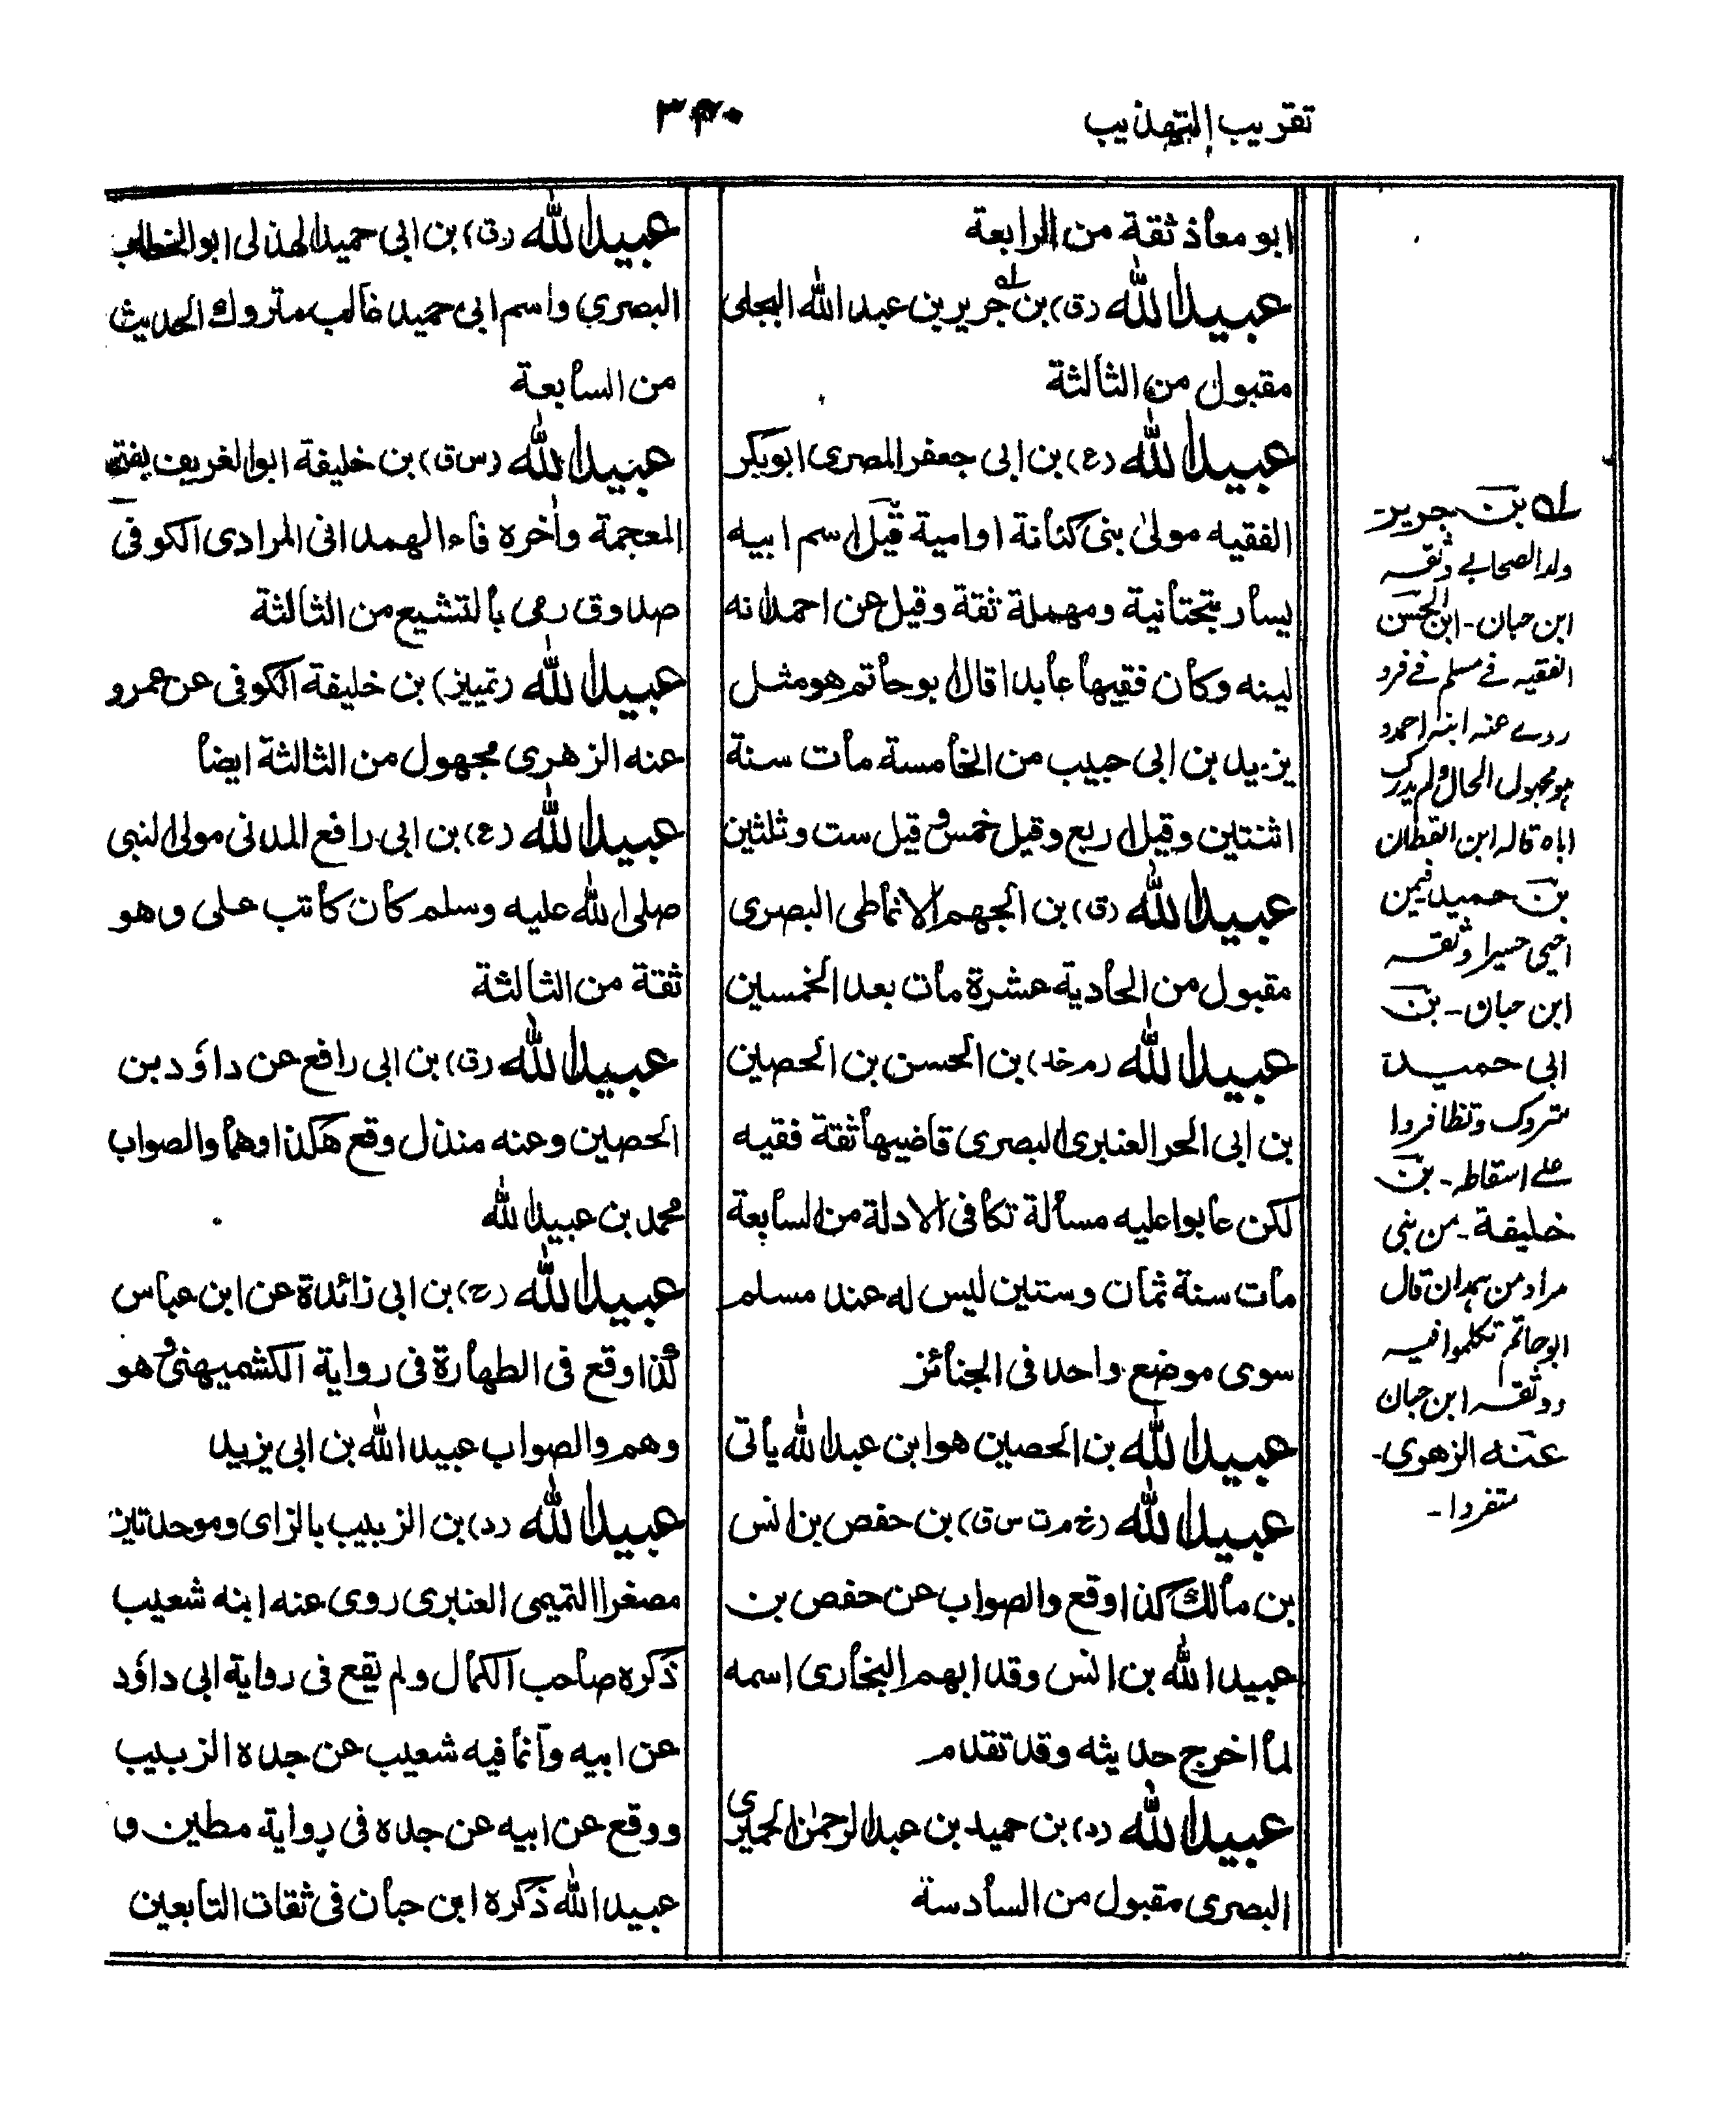 تقريب التهذيب
ابو معاذ ثقة من الرابعة
عبيد الله (ق) بن جرير بن عبد الله البجلى
مقبول من الثالثة
عبيد الله (ع) بن ابى جعفر المصرى ابوبكر
الفقيه مولى بنى كنانة او امية قيل اسم ابيه
يسار بتحتانية ومهملة ثقة وقيل عن احمد انه
لينه وكان فقيها عابدا قال ابو حاتم هو مثل
يزيد بن ابى حبيب من الخامسة مات سنة
اثنتين وقيل اربع وقيل خمس وقيل ست وثلثين
عبيد الله (ق) بن الجهم الانماطى البصرى
مقبول من الحادية عشرة مات بعد الخمسين
عبيد الله (م خد) بن الحسن بن الحصين
بن ابى الحر العنبرى البصرى قاضيها ثقة فقيه
لكن عابوا عليه مسألة تكافى الادلة من السابعة
مات سنة ثمان وستين ليس له عند مسلم
سوى موضع واحد فى الجنائز
عبيد الله بن الحصين هو ابن عبد الله يأتى
عبيد الله (خ م ت س ق) بن حفص بن انس
بن مالك كذا وقع والصواب عن حفص بن
عبيد الله بن انس وقد ابهم البخارى اسمه
لما اخرج حديثه وقد تقدم
عبيد الله (د) بن حميد بن عبد الرحمٰن الحميرى
البصرى مقبول من السادسة
عبيد الله (ق) بن ابى حميد الهذلى ابو الخطاب
البصري واسم ابى حميد غالب متروك الحديث
من السابعة
عبيد الله (س ق) بن خليفة ابو الغريف بفتح
المعجمة وأخره فاء الهمدانى المرادى الكوفى
صدوق رمى بالتشيع من الثالثة
عبيد الله (تمييز) بن خليفة الكوفى عن عمرو
عنه الزهرى مجهول من الثالثة ايضا
عبيد الله (ع) بن ابى رافع المدنى مولى النبى
صلى الله عليه وسلم كان كاتب على وهو
ثقة من الثالثة
عبيد الله (ق) بن ابى رافع عن داؤد بن
الحصين وعنه مندل وقع هكذا وهما والصواب
محمد بن عبيد الله
عبيد الله (خ) بن ابى زائدة عن ابن عباس
كذا وقع فى الطهارة فى رواية الكشميهنى وهو
وهم والصواب عبيد الله بن ابى يزيد
عبيد الله (د) بن الزبيب بالزاى وموحدتين
مصغرا التميمى العنبرى روى عنه ابنه شعيب
ذكره صاحب الكمال ولم يقع فى رواية ابى داؤد
عن ابيه وانما فيه شعيب عن جده الزبيب
ووقع عن ابيه عن جده فى رواية مطين و
عبيد الله ذكره ابن حبان فى ثقات التابعين
له بن جرير-
ولد الصحابي وثقه
ابن حبان - ابن الحسن
الفقيه في مسلم في فرد
روے عنه ابنه احمد و
هو مجهول الحال ولم يدرك
اباه قاله ابن القطان
بن حميد فيمن
وثقه
ابن حبان - بن
ابى حميد
متروك وتظافروا
علے اسقاطه - بن
خليفة - من بنى
مراد من همدان قال
ابو حاتم تكلموا فيه
ووثقه ابن حبان
عنه الزهرى-
متفردا -